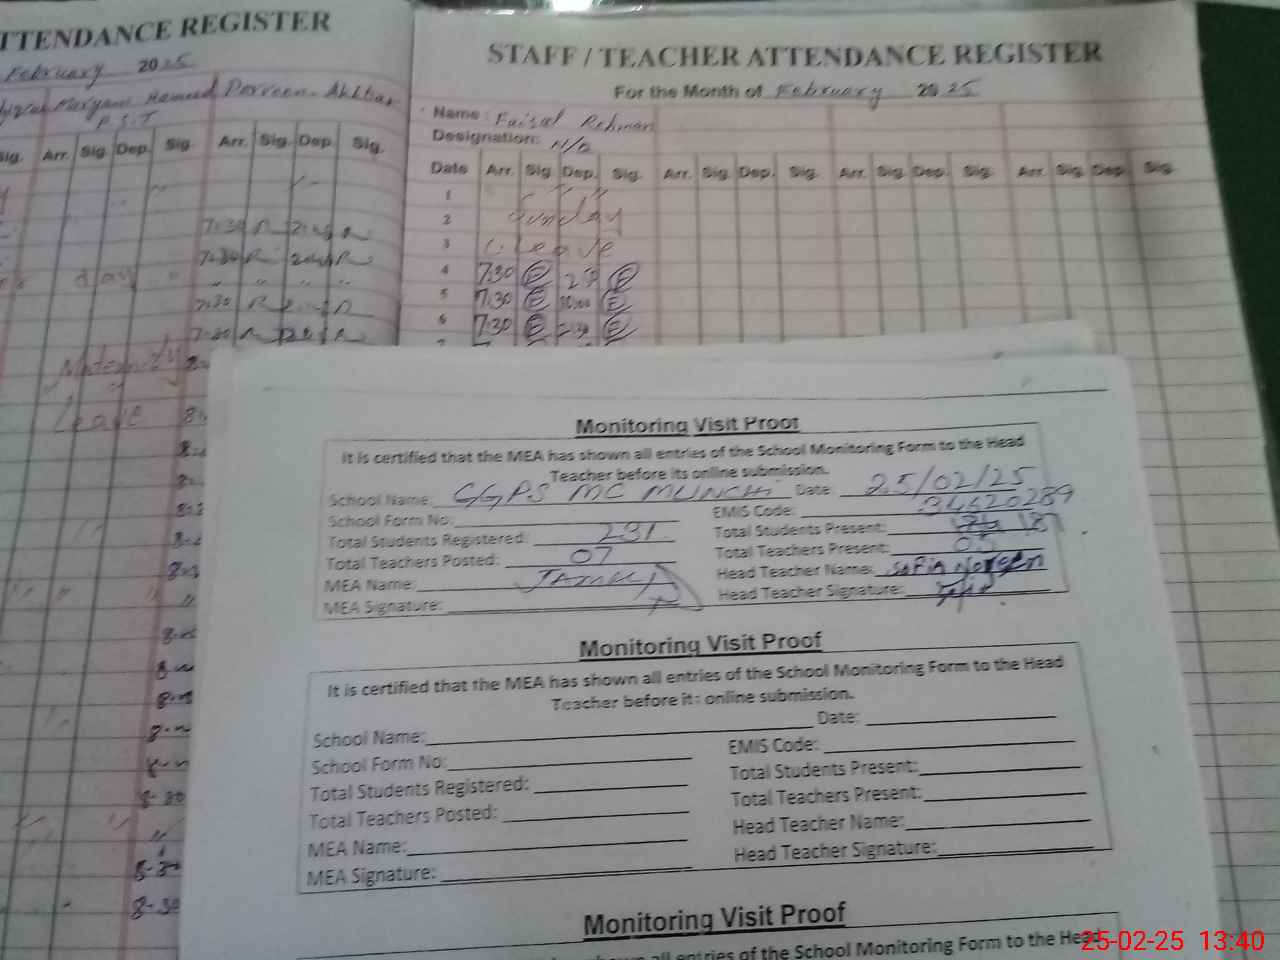 TTENDANCE REGISTER
February 2025
Maryam Hameed Parveen Akhtar
P.S.T
Sig. Arr. Sig. Dep. Sig. Arr. Sig. Dep. Sig.
7:30
7:30
day
7:30
7:30
Maternity
Leave
8-30
8-30
STAFF / TEACHER ATTENDANCE REGISTER
For the Month of February 2025
Name : Faisal Rehman
Designation: N/Q
Date Arr. Sig. Dep. Sig. Arr. Sig. Dep. Sig. Arr. Sig. Dep. Sig. Arr. Sig. Dep. Sig.
1
2 Sunday
3 C. Leave
4 7:30
5 7:30 10:00
6 7:30 2:30
Monitoring Visit Proof
It is certified that the MEA has shown all entries of the School Monitoring Form to the Head
Teacher before its online submission.
School Name: GGPS MC MUNCHI Date 25/02/25
School Form No: EMIS Code: 34620289
Total Students Registered: 231 Total Students Present: 181
Total Teachers Posted: 07 Total Teachers Present: 05
MEA Name: Head Teacher Name: Safia Noreen
MEA Signature: Head Teacher Signature:
Monitoring Visit Proof
It is certified that the MEA has shown all entries of the School Monitoring Form to the Head
Teacher before its online submission.
School Name: Date:
School Form No: EMIS Code:
Total Students Registered: Total Students Present:
Total Teachers Posted: Total Teachers Present:
MEA Name: Head Teacher Name:
MEA Signature: Head Teacher Signature:
Monitoring Visit Proof
all entries of the School Monitoring Form to the Head
25-02-25 13:40